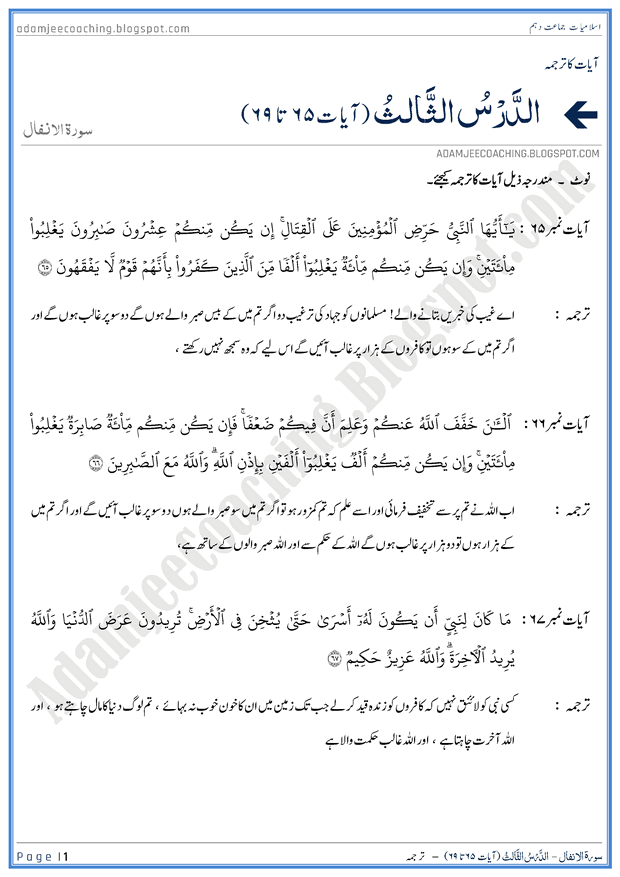 adamjeecoaching.blogspot.com
اسلامیات جماعت دہم
آیات کا ترجمہ
الدَّرْسُ الثَّالِثُ (آیات ۶۵ تا ۶۹)
سورۃ الانفال
ADAMJEECOACHING.BLOGSPOT.COM
نوٹ ۔ مندرجہ ذیل آیات کا ترجمہ کیجئے۔
آیات نمبر ۶۵ : يَـٰٓأَيُّهَا ٱلنَّبِىُّ حَرِّضِ ٱلْمُؤْمِنِينَ عَلَى ٱلْقِتَالِ ۚ إِن يَكُن مِّنكُمْ عِشْرُونَ صَـٰبِرُونَ يَغْلِبُوا۟
مِا۟ئَتَيْنِ ۚ وَإِن يَكُن مِّنكُم مِّا۟ئَةٌ يَغْلِبُوٓا۟ أَلْفًا مِّنَ ٱلَّذِينَ كَفَرُوا۟ بِأَنَّهُمْ قَوْمٌ لَّا يَفْقَهُونَ ۝٦٥
ترجمہ : اے غیب کی خبریں بتانے والے! مسلمانوں کو جہاد کی ترغیب دو اگر تم میں کے بیس صبر والے ہوں گے دو سو پر غالب ہوں گے اور
اگر تم میں کے سو ہوں تو کافروں کے ہزار پر غالب آئیں گے اس لیے کہ وہ سمجھ نہیں رکھتے ،
آیات نمبر ۶۶ : ٱلْـَٔـٰنَ خَفَّفَ ٱللَّهُ عَنكُمْ وَعَلِمَ أَنَّ فِيكُمْ ضَعْفًا ۚ فَإِن يَكُن مِّنكُم مِّا۟ئَةٌ صَابِرَةٌ يَغْلِبُوا۟
مِا۟ئَتَيْنِ ۚ وَإِن يَكُن مِّنكُمْ أَلْفٌ يَغْلِبُوٓا۟ أَلْفَيْنِ بِإِذْنِ ٱللَّهِ ۗ وَٱللَّهُ مَعَ ٱلصَّـٰبِرِينَ ۝٦٦
ترجمہ : اب اللہ نے تم پر سے تخفیف فرمائی اور اسے علم کہ تم کمزور ہو تو اگر تم میں سو صبر والے ہوں دو سو پر غالب آئیں گے اور اگر تم میں
کے ہزار ہوں تو دو ہزار پر غالب ہوں گے اللہ کے حکم سے اور اللہ صبر والوں کے ساتھ ہے،
آیات نمبر ۶۷ : مَا كَانَ لِنَبِىٍّ أَن يَكُونَ لَهُۥٓ أَسْرَىٰ حَتَّىٰ يُثْخِنَ فِى ٱلْأَرْضِ ۚ تُرِيدُونَ عَرَضَ ٱلدُّنْيَا وَٱللَّهُ
يُرِيدُ ٱلْـَٔاخِرَةَ ۗ وَٱللَّهُ عَزِيزٌ حَكِيمٌ ۝٦٧
ترجمہ : کسی نبی کو لائق نہیں کہ کافروں کو زندہ قید کر لے جب تک زمین میں ان کا خون خوب نہ بہائے ، تم لوگ دنیا کا مال چاہتے ہو ، اور
اللہ آخرت چاہتا ہے ، اور اللہ غالب حکمت والا ہے
AdamjeeCoaching.Blogspot.com
Page |1
سورۃ الانفال – الدَّرْسُ الثَّالِثُ (آیات ۶۵ تا ۶۹) – ترجمہ